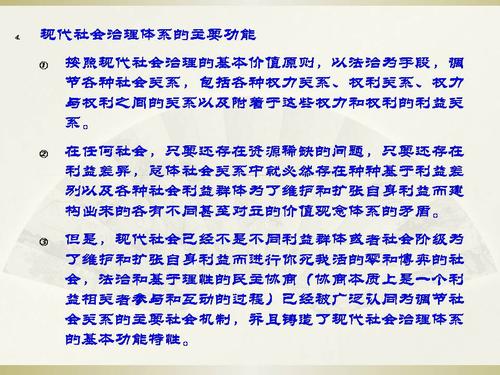 4. 现代社会治理体系的主要功能
① 按照现代社会治理的基本价值原则，以法治为手段，调
节各种社会关系，包括各种权力关系、权利关系、权力
与权利之间的关系以及附着于这些权力和权利的利益关
系。
② 在任何社会，只要还存在资源稀缺的问题，只要还存在
利益差异，总体社会关系中就必然存在种种基于利益差
别以及各种社会利益群体为了维护和扩张自身利益而建
构出来的各有不同甚至对立的价值观念体系的矛盾。
③ 但是，现代社会已经不是不同利益群体或者社会阶级为
了维护和扩张自身利益而进行你死我活的零和博弈的社
会，法治和基于理性的民主协商（协商本质上是一个利
益相关者参与和互动的过程）已经被广泛认同为调节社
会关系的主要社会机制，并且铸造了现代社会治理体系
的基本功能特性。